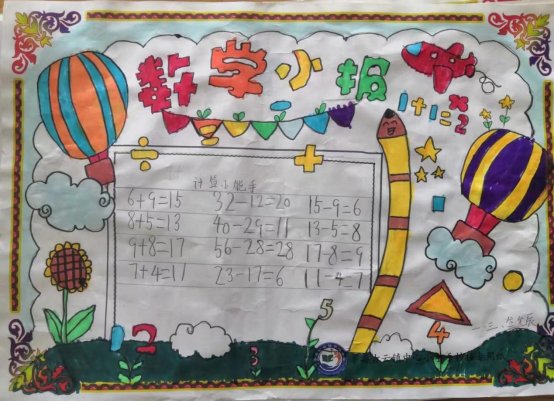 数学小报
1+1=2
÷
+
计算小能手
6+9=15 32-12=20 15-9=6
8+5=13 40-29=11 13-5=8
9+8=17 56-28=28 17-8=9
7+4=11 23-17=6 11-4=7
5
1 2 3 4